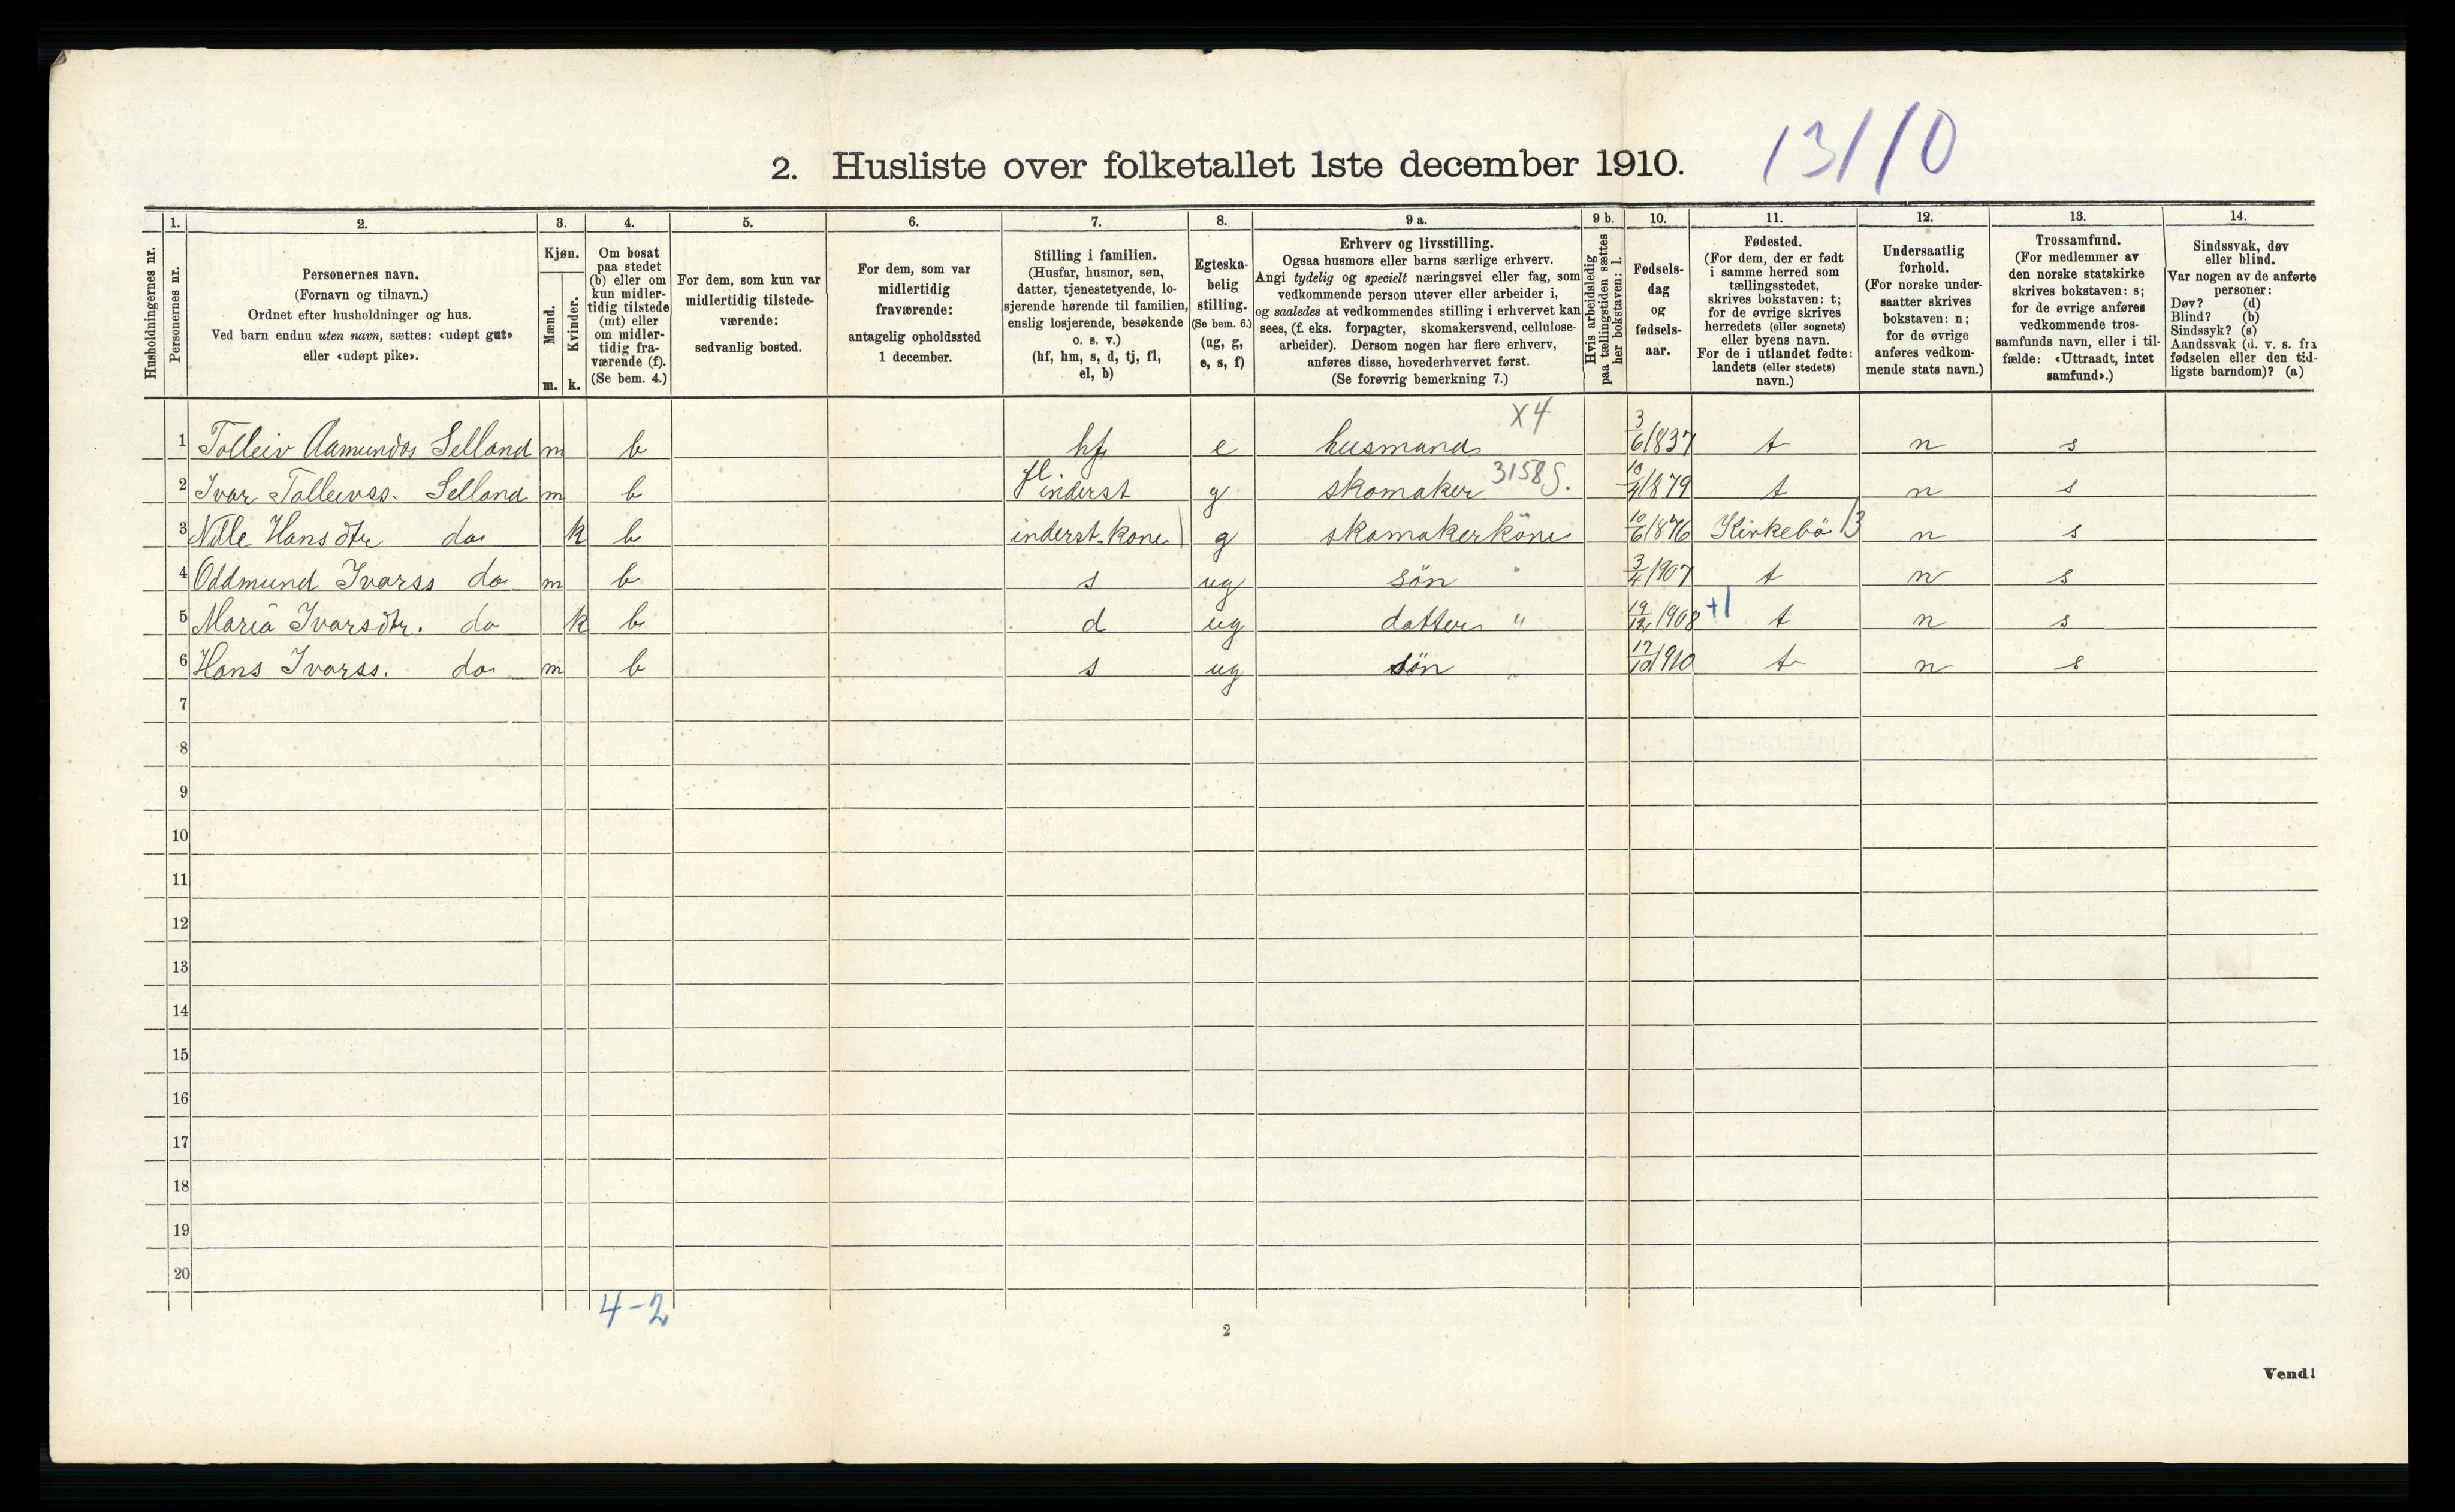 2. Husliste over folketallet 1ste december 1910.
13/10
Husholdningernes nr.
1.
Personernes nr.
2.
Personernes navn.
(Fornavn og tilnavn.)
Ordnet efter husholdninger og hus.
Ved barn endnu uten navn, sættes: «udøpt gut»
eller «udøpt pike».
3.
Kjøn.
Mænd.
m.
Kvinder.
k.
4.
Om bosat
paa stedet
(b) eller om
kun midler-
tidig tilstede
(mt) eller
om midler-
tidig fra-
værende (f).
(Se bem. 4.)
5.
For dem, som kun var
midlertidig tilstede-
værende:
sedvanlig bosted.
6.
For dem, som var
midlertidig
fraværende:
antagelig opholdssted
1 december.
7.
Stilling i familien.
(Husfar, husmor, søn,
datter, tjenestetyende, lo-
sjerende hørende til familien,
enslig losjerende, besøkende
o. s. v.)
(hf, hm, s, d, tj, fl,
el, b)
8.
Egteska-
belig
stilling.
(Se bem. 6.)
(ug, g,
e, s, f)
9 a.
Erhverv og livsstilling.
Ogsaa husmors eller barns særlige erhverv.
Angi tydelig og specielt næringsvei eller fag, som
vedkommende person utøver eller arbeider i,
og saaledes at vedkommendes stilling i erhvervet kan
sees, (f. eks. forpagter, skomakersvend, cellulose-
arbeider). Dersom nogen har flere erhverv,
anføres disse, hovederhvervet først.
(Se forøvrig bemerkning 7.)
9 b.
Hvis arbeidsledig
paa tællingstiden sættes
her bokstaven: l.
10.
Fødsels-
dag
og
fødsels-
aar.
11.
Fødested.
(For dem, der er født
i samme herred som
tællingsstedet,
skrives bokstaven: t;
for de øvrige skrives
herredets (eller sognets)
eller byens navn.
For de i utlandet fødte:
landets (eller stedets)
navn.)
12.
Undersaatlig
forhold.
(For norske under-
saatter skrives
bokstaven: n;
for de øvrige
anføres vedkom-
mende stats navn.)
13.
Trossamfund.
(For medlemmer av
den norske statskirke
skrives bokstaven: s;
for de øvrige anføres
vedkommende tros-
samfunds navn, eller i til-
fælde: «Uttraadt, intet
samfund».)
14.
Sindssvak, døv
eller blind.
Var nogen av de anførte
personer:
Døv? (d)
Blind? (b)
Sindssyk? (s)
Aandssvak (d. v. s. fra
fødselen eller den tid-
ligste barndom)? (a)
X4
1 Tolleiv Aamundss Selland m b hf e husmand 3/6 1837 t n s
2 Ivar Tolleivss. Selland m b fl inderst g skomaker 3158 S. 10/4 1879 t n s
3 Nille Hansdtr do k b inderst. kone g skomakerkone 10/6 1876 Kirkebö 13 n s
4 Oddmund Ivarss do m b s ug sön " 3/4 1907 t n s
5 Maria Ivarsdtr. do k b d ug datter " 19/12 1908 +1 t n s
6 Hans Ivarss. do m b s ug sön " 17/10 1910 t n s
7
8
9
10
11
12
13
14
15
16
17
18
19
20
4-2
2
Vend!